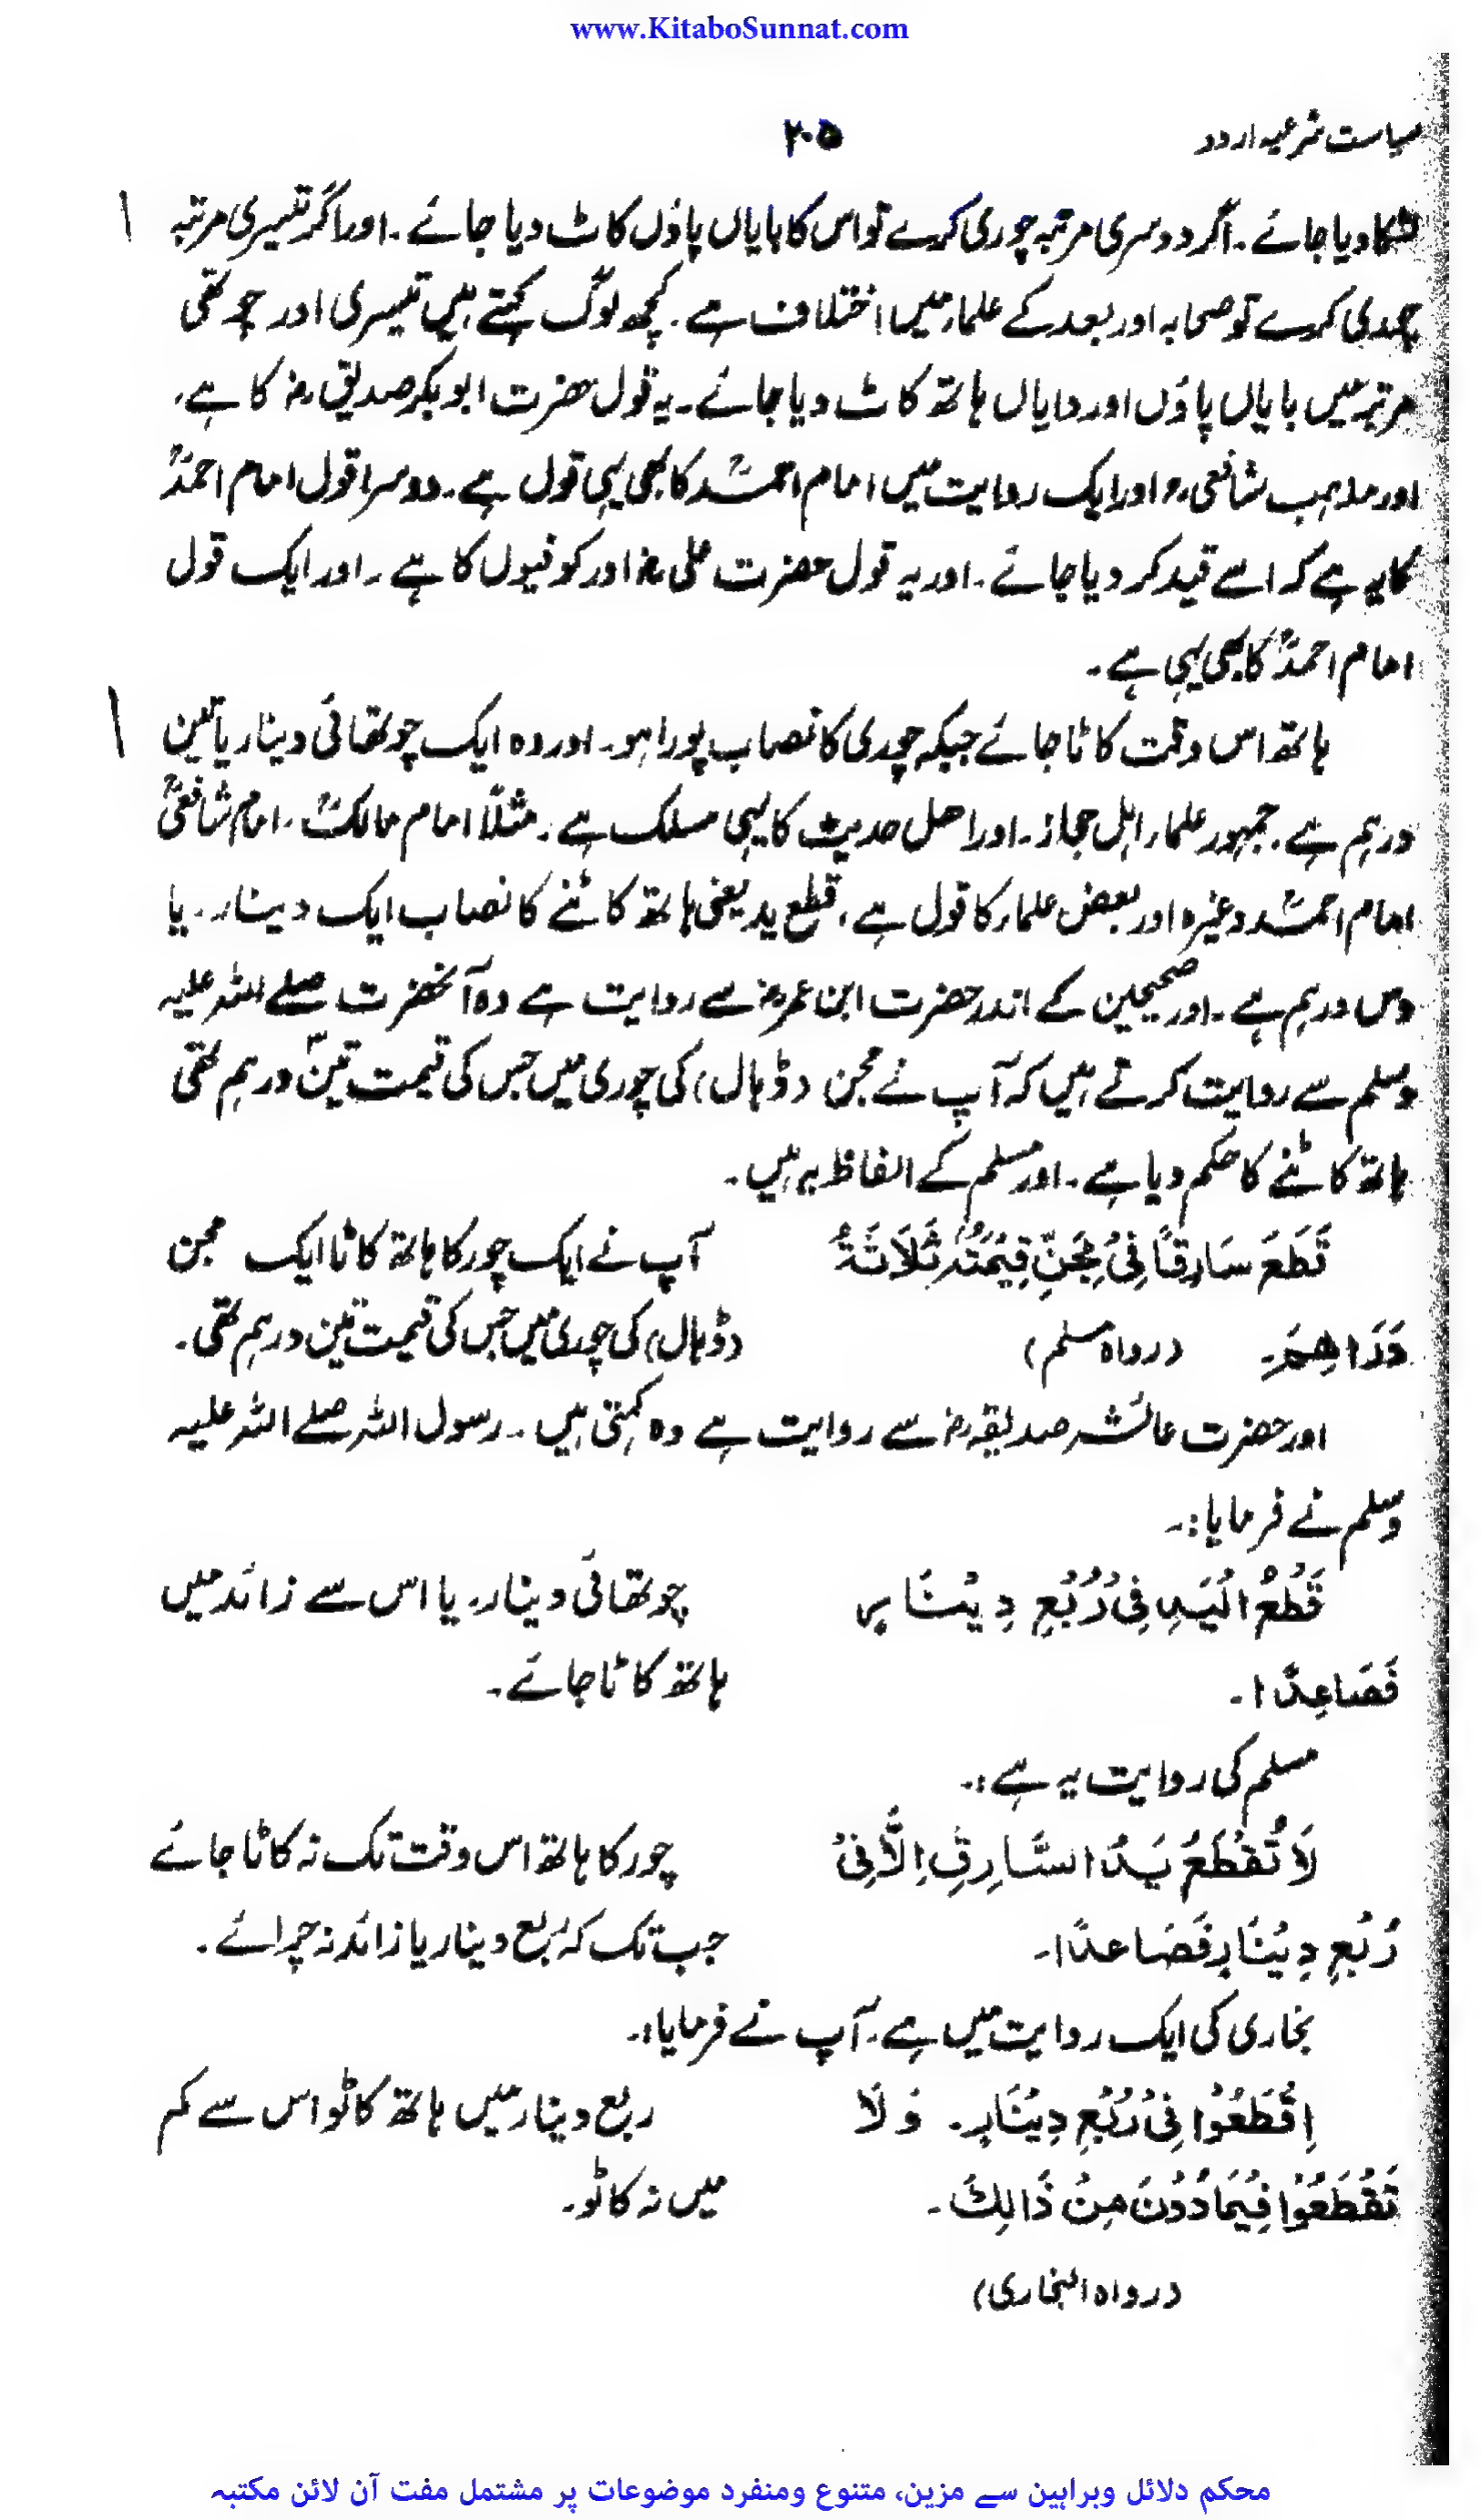 www.KitaboSunnat.com
سیاست شرعیہ اردو
۲۰۵
لٹکا دیا جائے۔ اگر دوسری مرتبہ چوری کرے تو اس کا بایاں پاؤں کاٹ دیا جائے۔ اور اگر تیسری مرتبہ
چوری کرے تو صحابہ اور بعد کے علماء میں اختلاف ہے۔ کچھ لوگ کہتے ہیں تیسری اور چوتھی
مرتبہ میں بایاں پاؤں اور دایاں ہاتھ کاٹ دیا جائے۔ یہ قول حضرت ابوبکر صدیق رض کا ہے،
اور مذاہب شافعی رح اور ایک روایت میں امام احمدؒ کا بھی یہی قول ہے۔ دوسرا قول امام احمدؒ
کا یہ ہے کہ اسے قید کر دیا جائے۔ اور یہ قول حضرت علی رض اور کوفیوں کا ہے۔ اور ایک قول
امام احمدؒ کا بھی یہی ہے۔
ہاتھ اس وقت کاٹا جائے جبکہ چوری کا نصاب پورا ہو۔ اور وہ ایک چوتھائی دینار یا تین
درہم ہے۔ جمہور علماء اہل حجاز۔ اور اھل حدیث کا یہی مسلک ہے۔ مثلاً امام مالکؒ، امام شافعیؒ
امام احمدؒ وغیرہ اور بعض علماء کا قول ہے، قطع ید یعنی ہاتھ کاٹنے کا نصاب ایک دینار۔ یا
دس درہم ہے۔ اور صحیحین کے اندر حضرت ابن عمر رض سے روایت ہے وہ آنحضرت صلے اللہ علیہ
وسلم سے روایت کرتے ہیں کہ آپ نے مجن (ڈہال) کی چوری میں جس کی قیمت تین درہم تھی
ہاتھ کاٹنے کا حکم دیا ہے۔ اور مسلم کے الفاظ یہ ہیں۔
قَطَعَ سَارِقًا فِیْ مِجَنٍّ قِیْمَتُہٗ ثَلَاثَۃُ
آپ نے ایک چور کا ہاتھ کاٹا ایک مجن
دَرَاھِمَ۔ (رواہ مسلم)
(ڈہال) کی چوری میں جس کی قیمت تین درہم تھی۔
اور حضرت عائشہ صدیقہ رض سے روایت ہے وہ کہتی ہیں۔ رسول اللہ صلے اللہ علیہ
وسلم نے فرمایا:۔
قَطْعُ الْیَدِ فِیْ رُبُعِ دِیْنَارٍ
چوتھائی دینار۔ یا اس سے زائد میں
فَصَاعِدًا۔
ہاتھ کاٹا جائے۔
مسلم کی روایت یہ ہے:۔
لَا تُقْطَعُ یَدُ السَّارِقِ اِلَّا فِیْ
چور کا ہاتھ اس وقت تک نہ کاٹا جائے
رُبُعِ دِیْنَارٍ فَصَاعِدًا۔
جب تک کہ ربع دینار یا زائد نہ چرائے۔
بخاری کی ایک روایت میں ہے۔ آپ نے فرمایا:۔
اِقْطَعُوْا فِیْ رُبُعِ دِیْنَارٍ۔ وَلَا
ربع دینار میں ہاتھ کاٹو اس سے کم
تَقْطَعُوْا فِیْمَا دُوْنَ مِنْ ذَالِکَ۔
میں نہ کاٹو۔
(رواہ البخاری)
محکم دلائل وبراہین سے مزین، متنوع ومنفرد موضوعات پر مشتمل مفت آن لائن مکتبہ